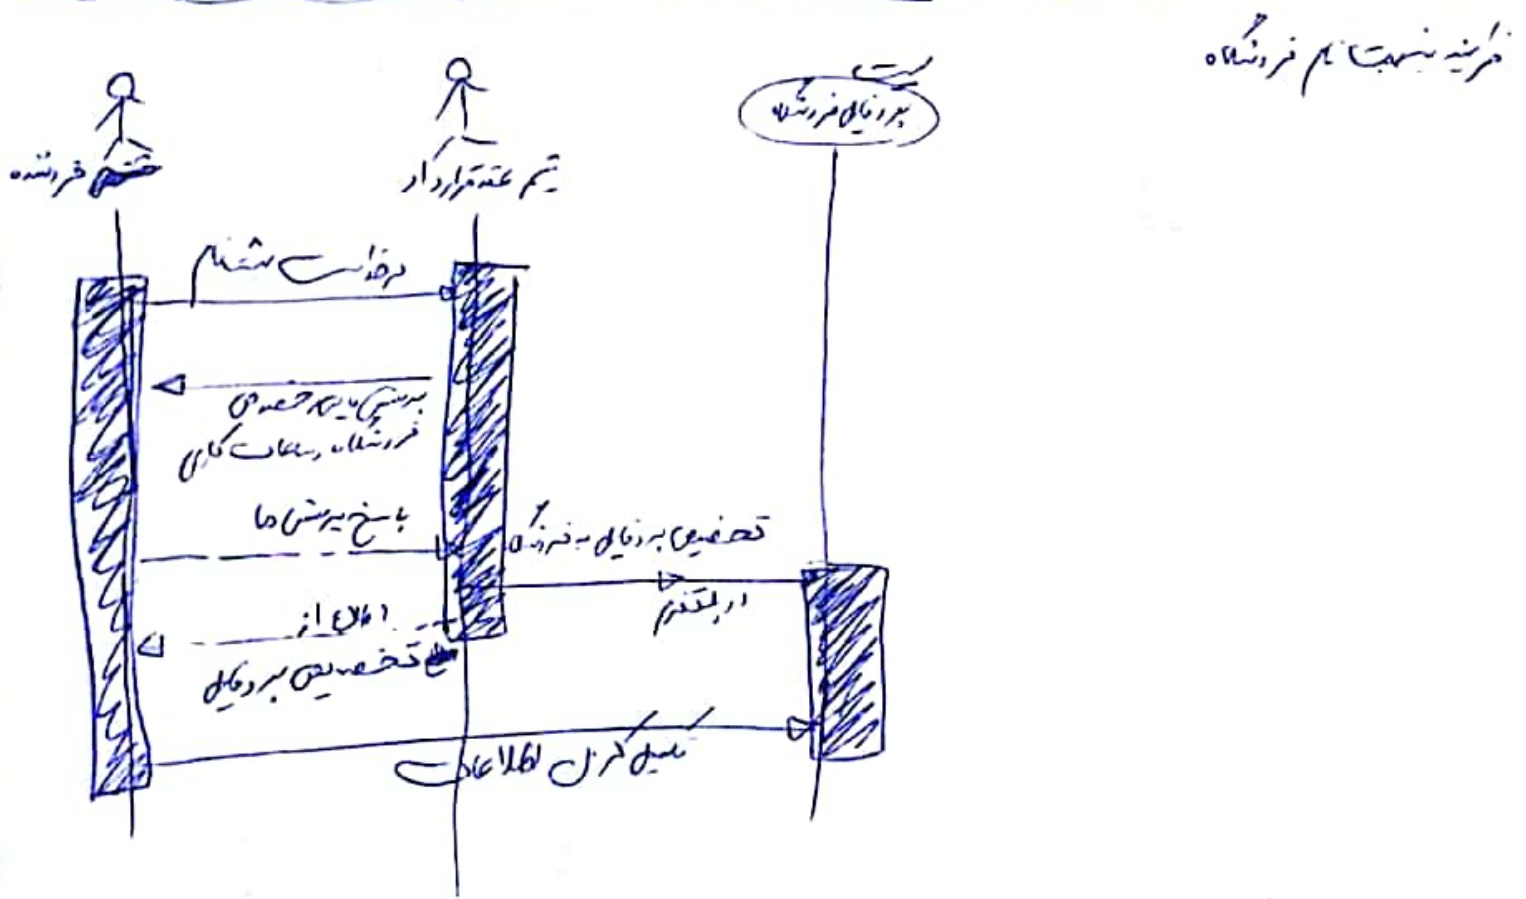 فرایند ثبت نام فروشگاه
فروشنده
تیم عقد قرارداد
پروفایل فروشگاه
درخواست ثبتنام
فروشگاه، ساعات کاری
پاسخ پرسش ها
تخصیص پروفایل به فروشگاه
در پلتفرم
اطلاع از
تخصیص پروفایل
تکمیل کردن اطلاعات